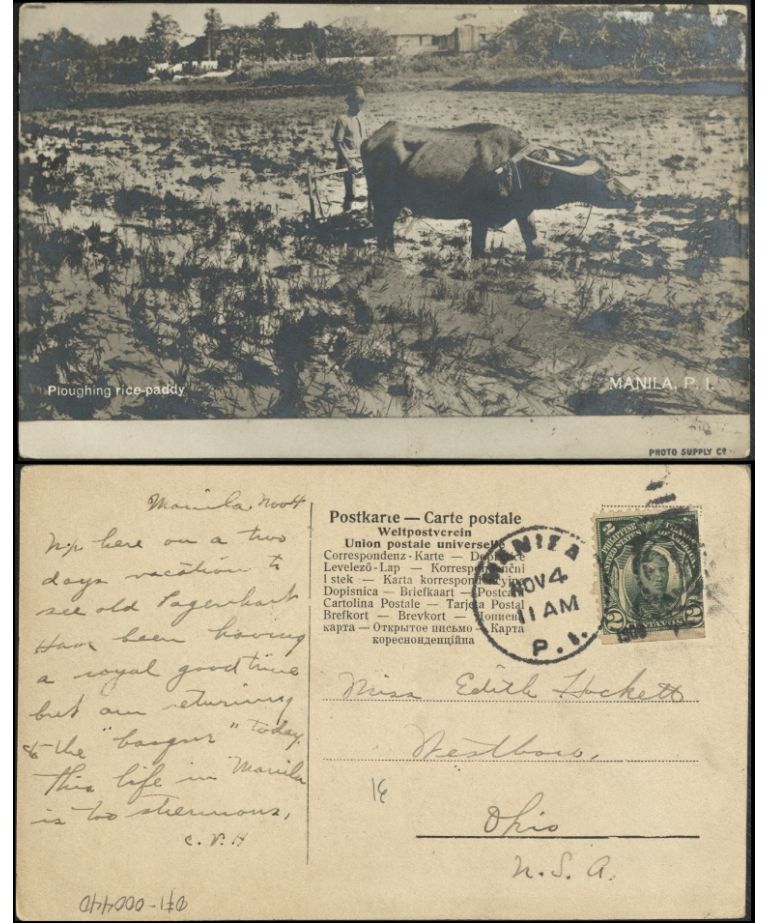 Ploughing rice-paddy
MANILA, P. I.
PHOTO SUPPLY Co
Manila, Nov 4
Up here on a two
days vacation to
see old Pagenhart
Have been having
a royal good time
but am returning
to the "bosque" today.
This life in Manila
is too strenuous.
C. V. H
Postkarte — Carte postale
Weltpostverein
Union postale universelle
Correspondenz-Karte — Dopisnice
Levelező-Lap — Korrespondenční
lístek — Karta korrespondencyjna
Dopisnica — Briefkaart — Postcard
Cartolina Postale — Tarjeta Postal
Brefkort — Brevkort — Дописна
карта — Открытое письмо — Карта
кореспонденційна
MANILA
NOV 4
11 AM
P. I.
PHILIPPINE ISLANDS
UNITED STATES OF AMERICA
2 CENTAVOS 2
Miss Edith Hockett
Westboro,
Ohio
U. S. A.